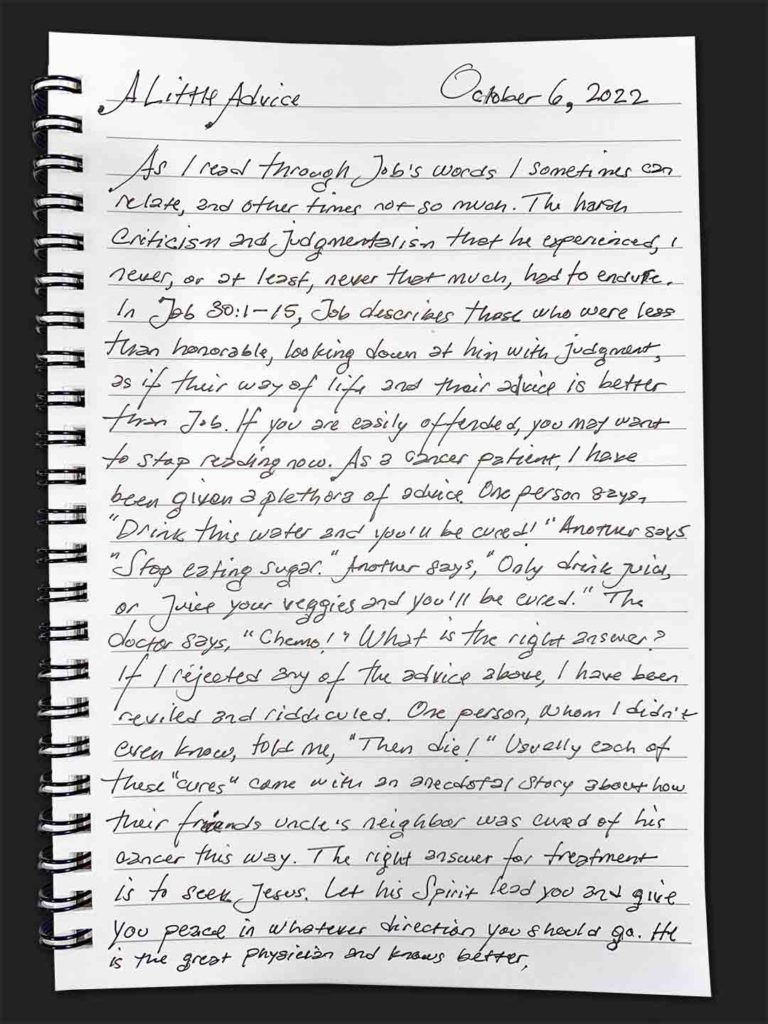 A Little Advice October 6, 2022
As I read through Job's words I sometimes can
relate, and other times not so much. The harsh
criticism and judgmentalism that he experienced, I
never, or at least, never that much, had to endure.
In Job 30:1-15, Job describes those who were less
than honorable, looking down at him with judgment,
as if their way of life and their advice is better
than Job. If you are easily offended, you may want
to stop reading now. As a cancer patient, I have
been given a plethora of advice. One person says,
"Drink this water and you'll be cured!" Another says
"Stop eating sugar." Another says, "Only drink juice,
or juice your veggies and you'll be cured." The
doctor says, "Chemo!" What is the right answer?
If I rejected any of the advice above, I have been
reviled and riddiculed. One person, whom I didn't
even know, told me, "Then die!" Usually each of
these "cures" came with an anecdotal story about how
their friends uncle's neighbor was cured of his
cancer this way. The right answer for treatment
is to seek Jesus. Let his Spirit lead you and give
you peace in whatever direction you should go. He
is the great physician and knows better.